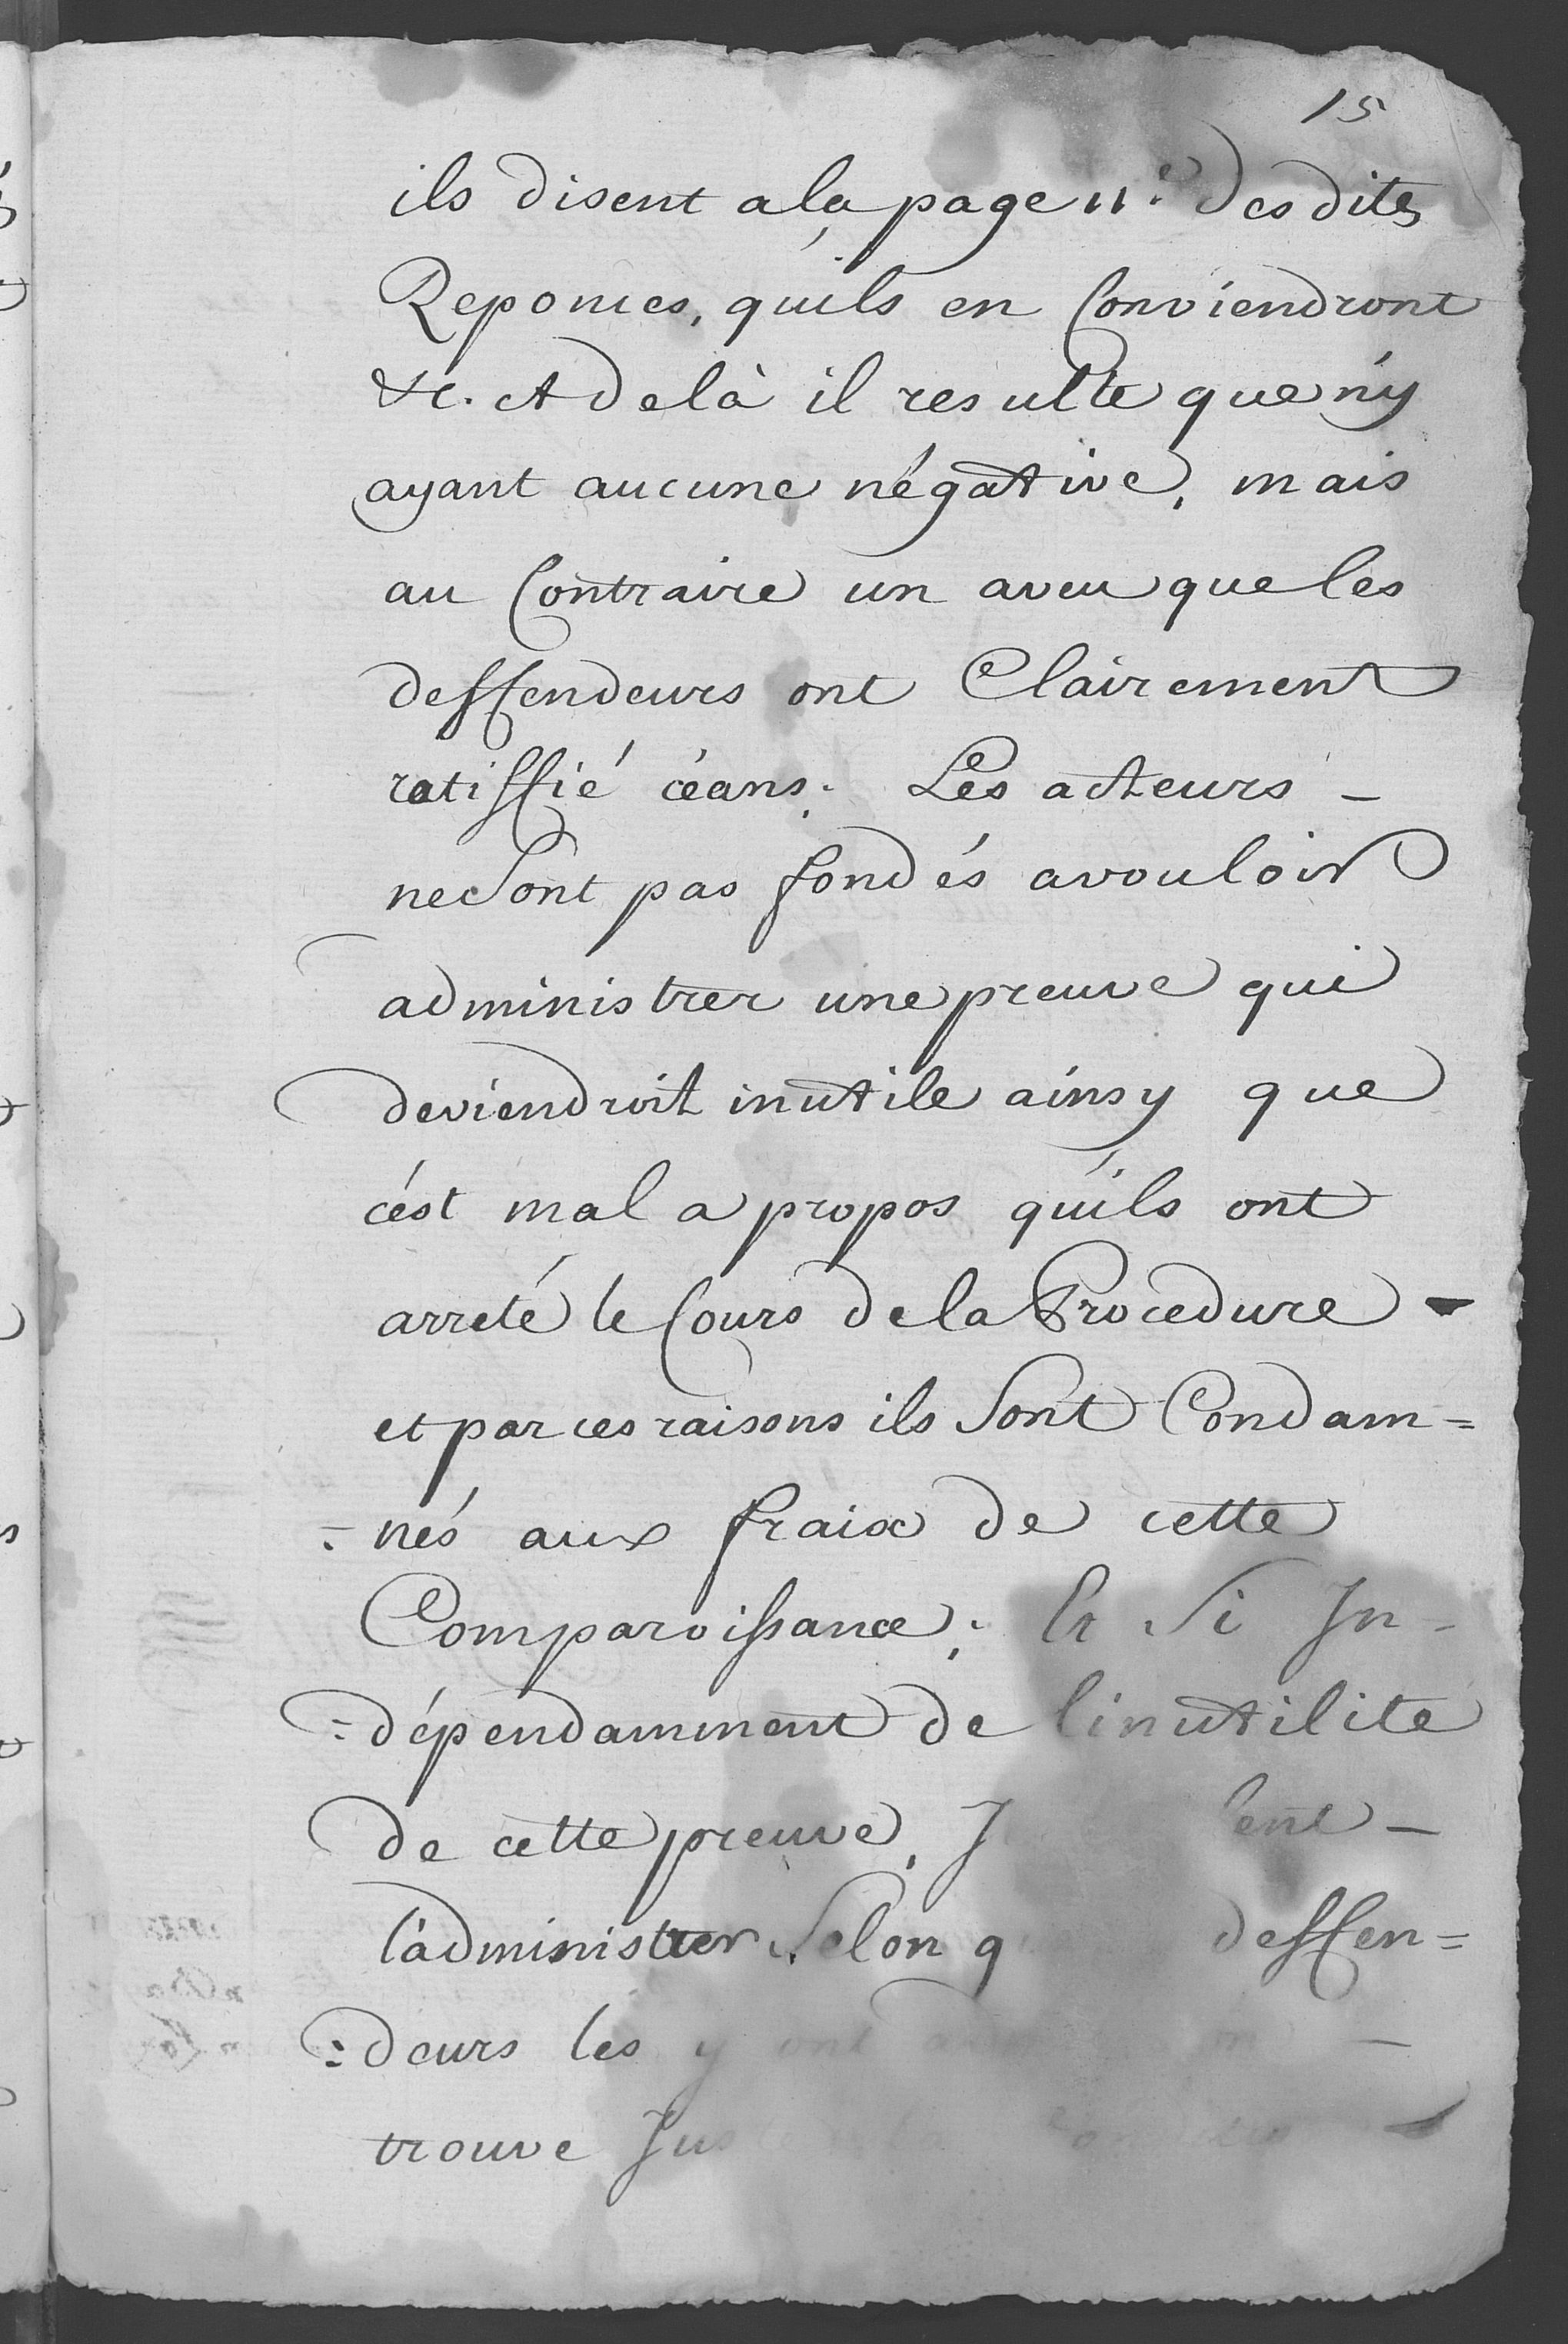 15
ils disent a la page 11.e des dites
Reponces, qu'ils en Conviendront
&c. A de là il resulte que n'y
ayant aucune négative, mais
au Contraire un aveu que les
deffendeurs ont Clairement
ratiffié céans. Les acteurs -
ne sont pas fondés a vouloir
administrer une preuve qui
deviendroit inutile ainsy que
c'ést mal a propos qu'ils ont
arreté le Cours de la Procedure -
et par ces raisons ils sont Condam=
= nés aux fraix de cette
Comparoissance; Et si In-
=dépendamment de l'inutilité
de cette preuve,
l'administrer selon deffen=
=deurs les y ont
trouve